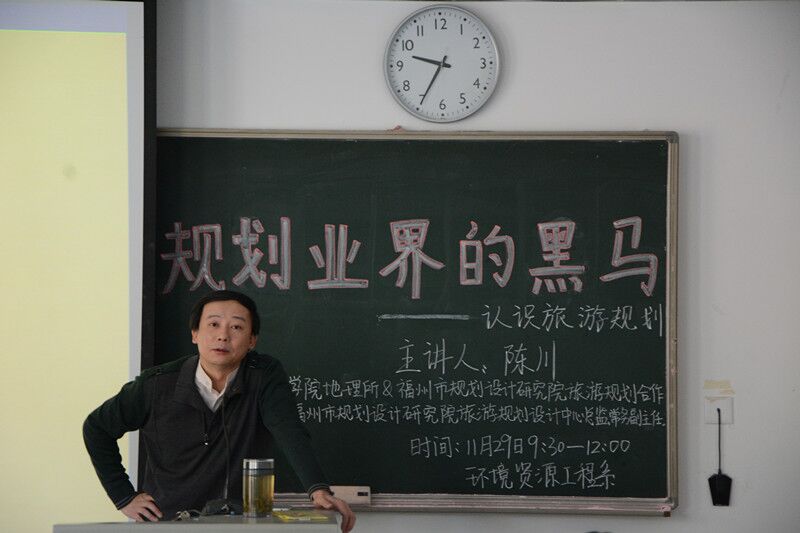 12
1
2
3
4
5
6
7
8
9
10
11
规划业界的黑马
——认识旅游规划
主讲人：陈川
学院地理所&福州市规划设计研究院旅游规划合作
福州市规划设计研究院旅游规划设计中心总监常务副主任
时间：11月29日9:30—12:00
环境资源工程系